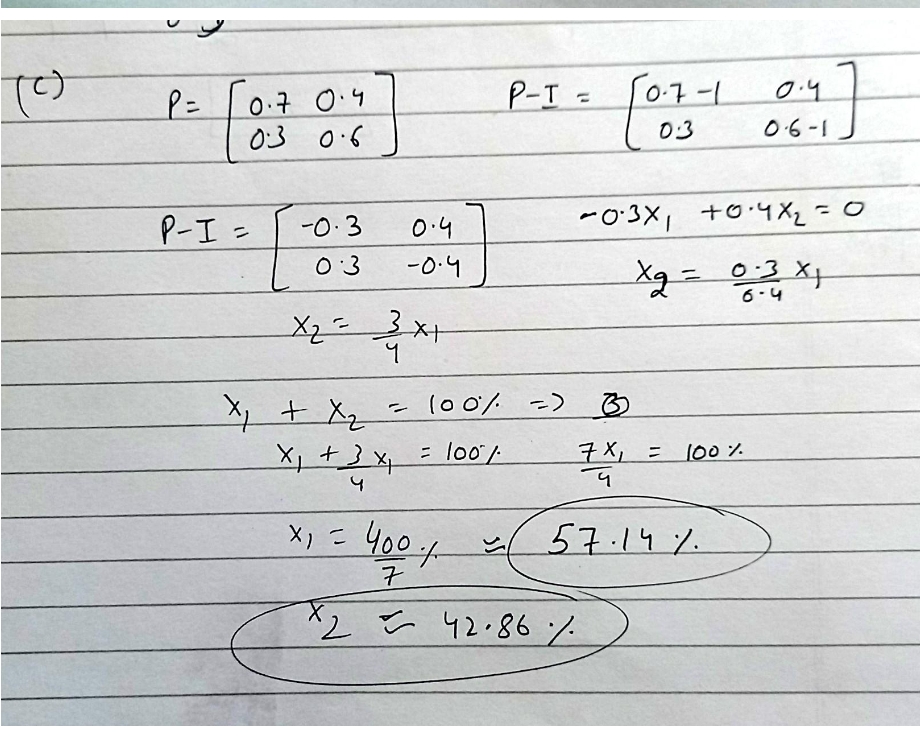 (c) P = [0.7 0.4 P-I = [0.7-1 0.4
0.3 0.6] 0.3 0.6-1]
P-I = [-0.3 0.4 -0.3x₁ + 0.4x₂ = 0
0.3 -0.4] x₂ = 0.3/0.4 x₁
x₂ = 3/4 x₁
x₁ + x₂ = 100% =>
x₁ + 3/4 x₁ = 100% 7x₁/4 = 100%
x₁ = 400/7 % ≈ 57.14 %
x₂ ≈ 42.86 %